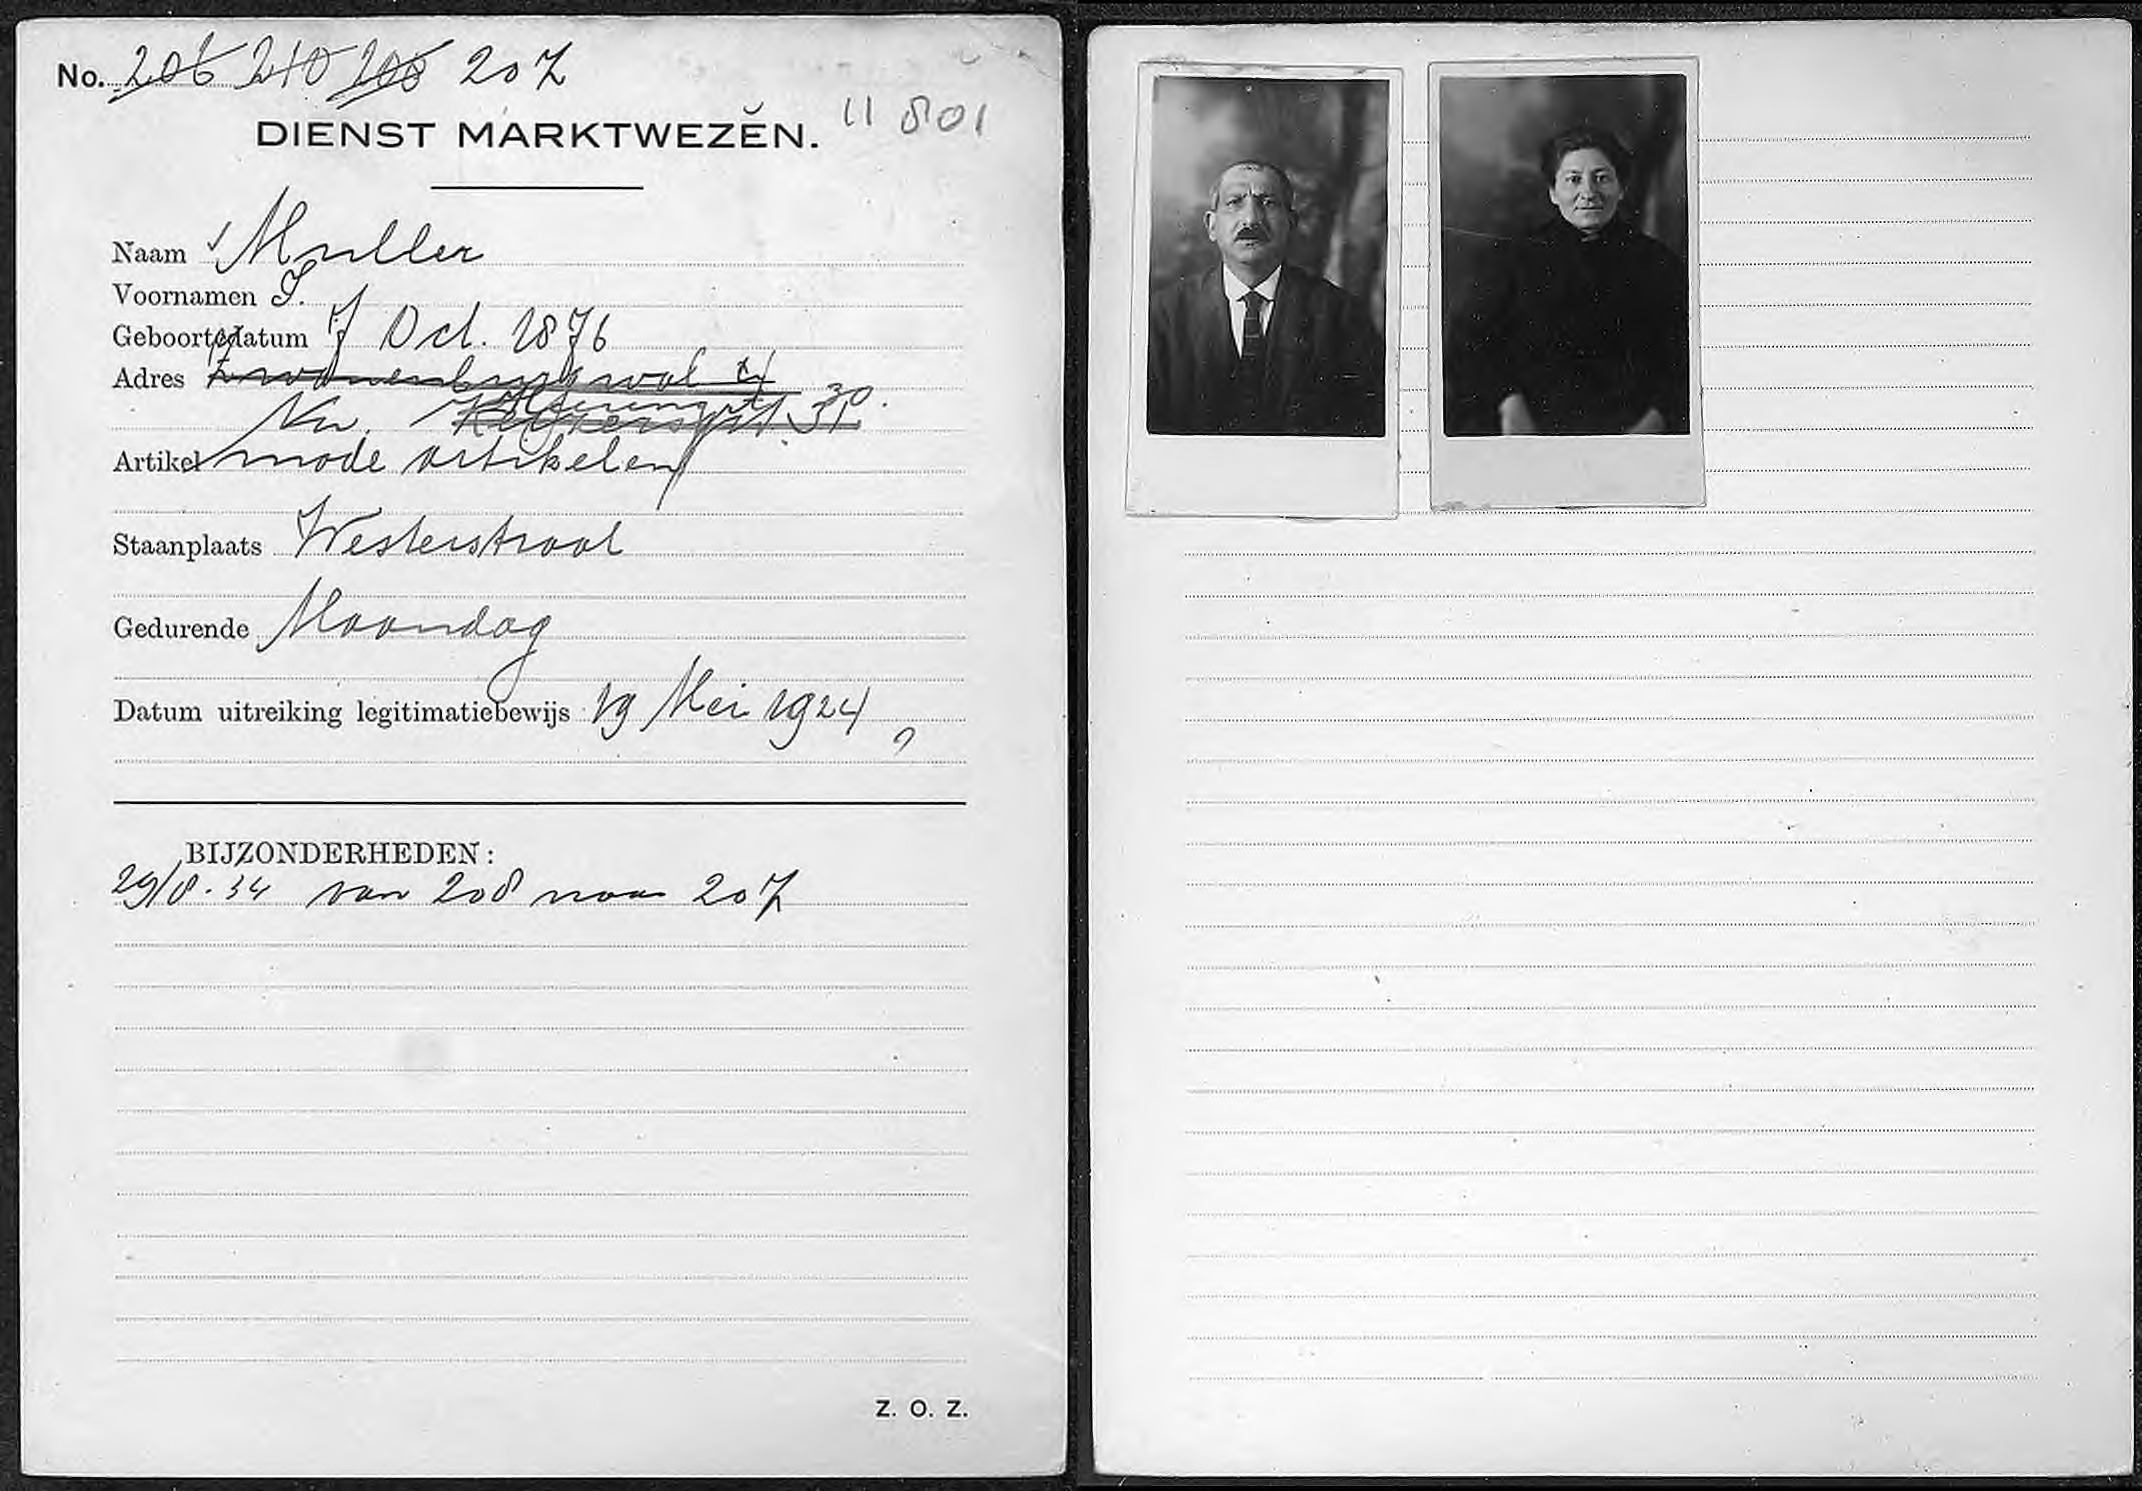 No. 206 210 208 207
DIENST MARKTWEZEN.
11 801
Naam Muller
Voornamen S.
Geboortedatum 7 Oct. 1876
Adres Zwanenburgwal
Nw. Keizersgrt. 31 30.
Artikel mode artikelen
Staanplaats Westerstraat
Gedurende Maandag
Datum uitreiking legitimatiebewijs 19 Mei 1924
BIJZONDERHEDEN:
29/8.34 van 208 naar 207
Z. O. Z.